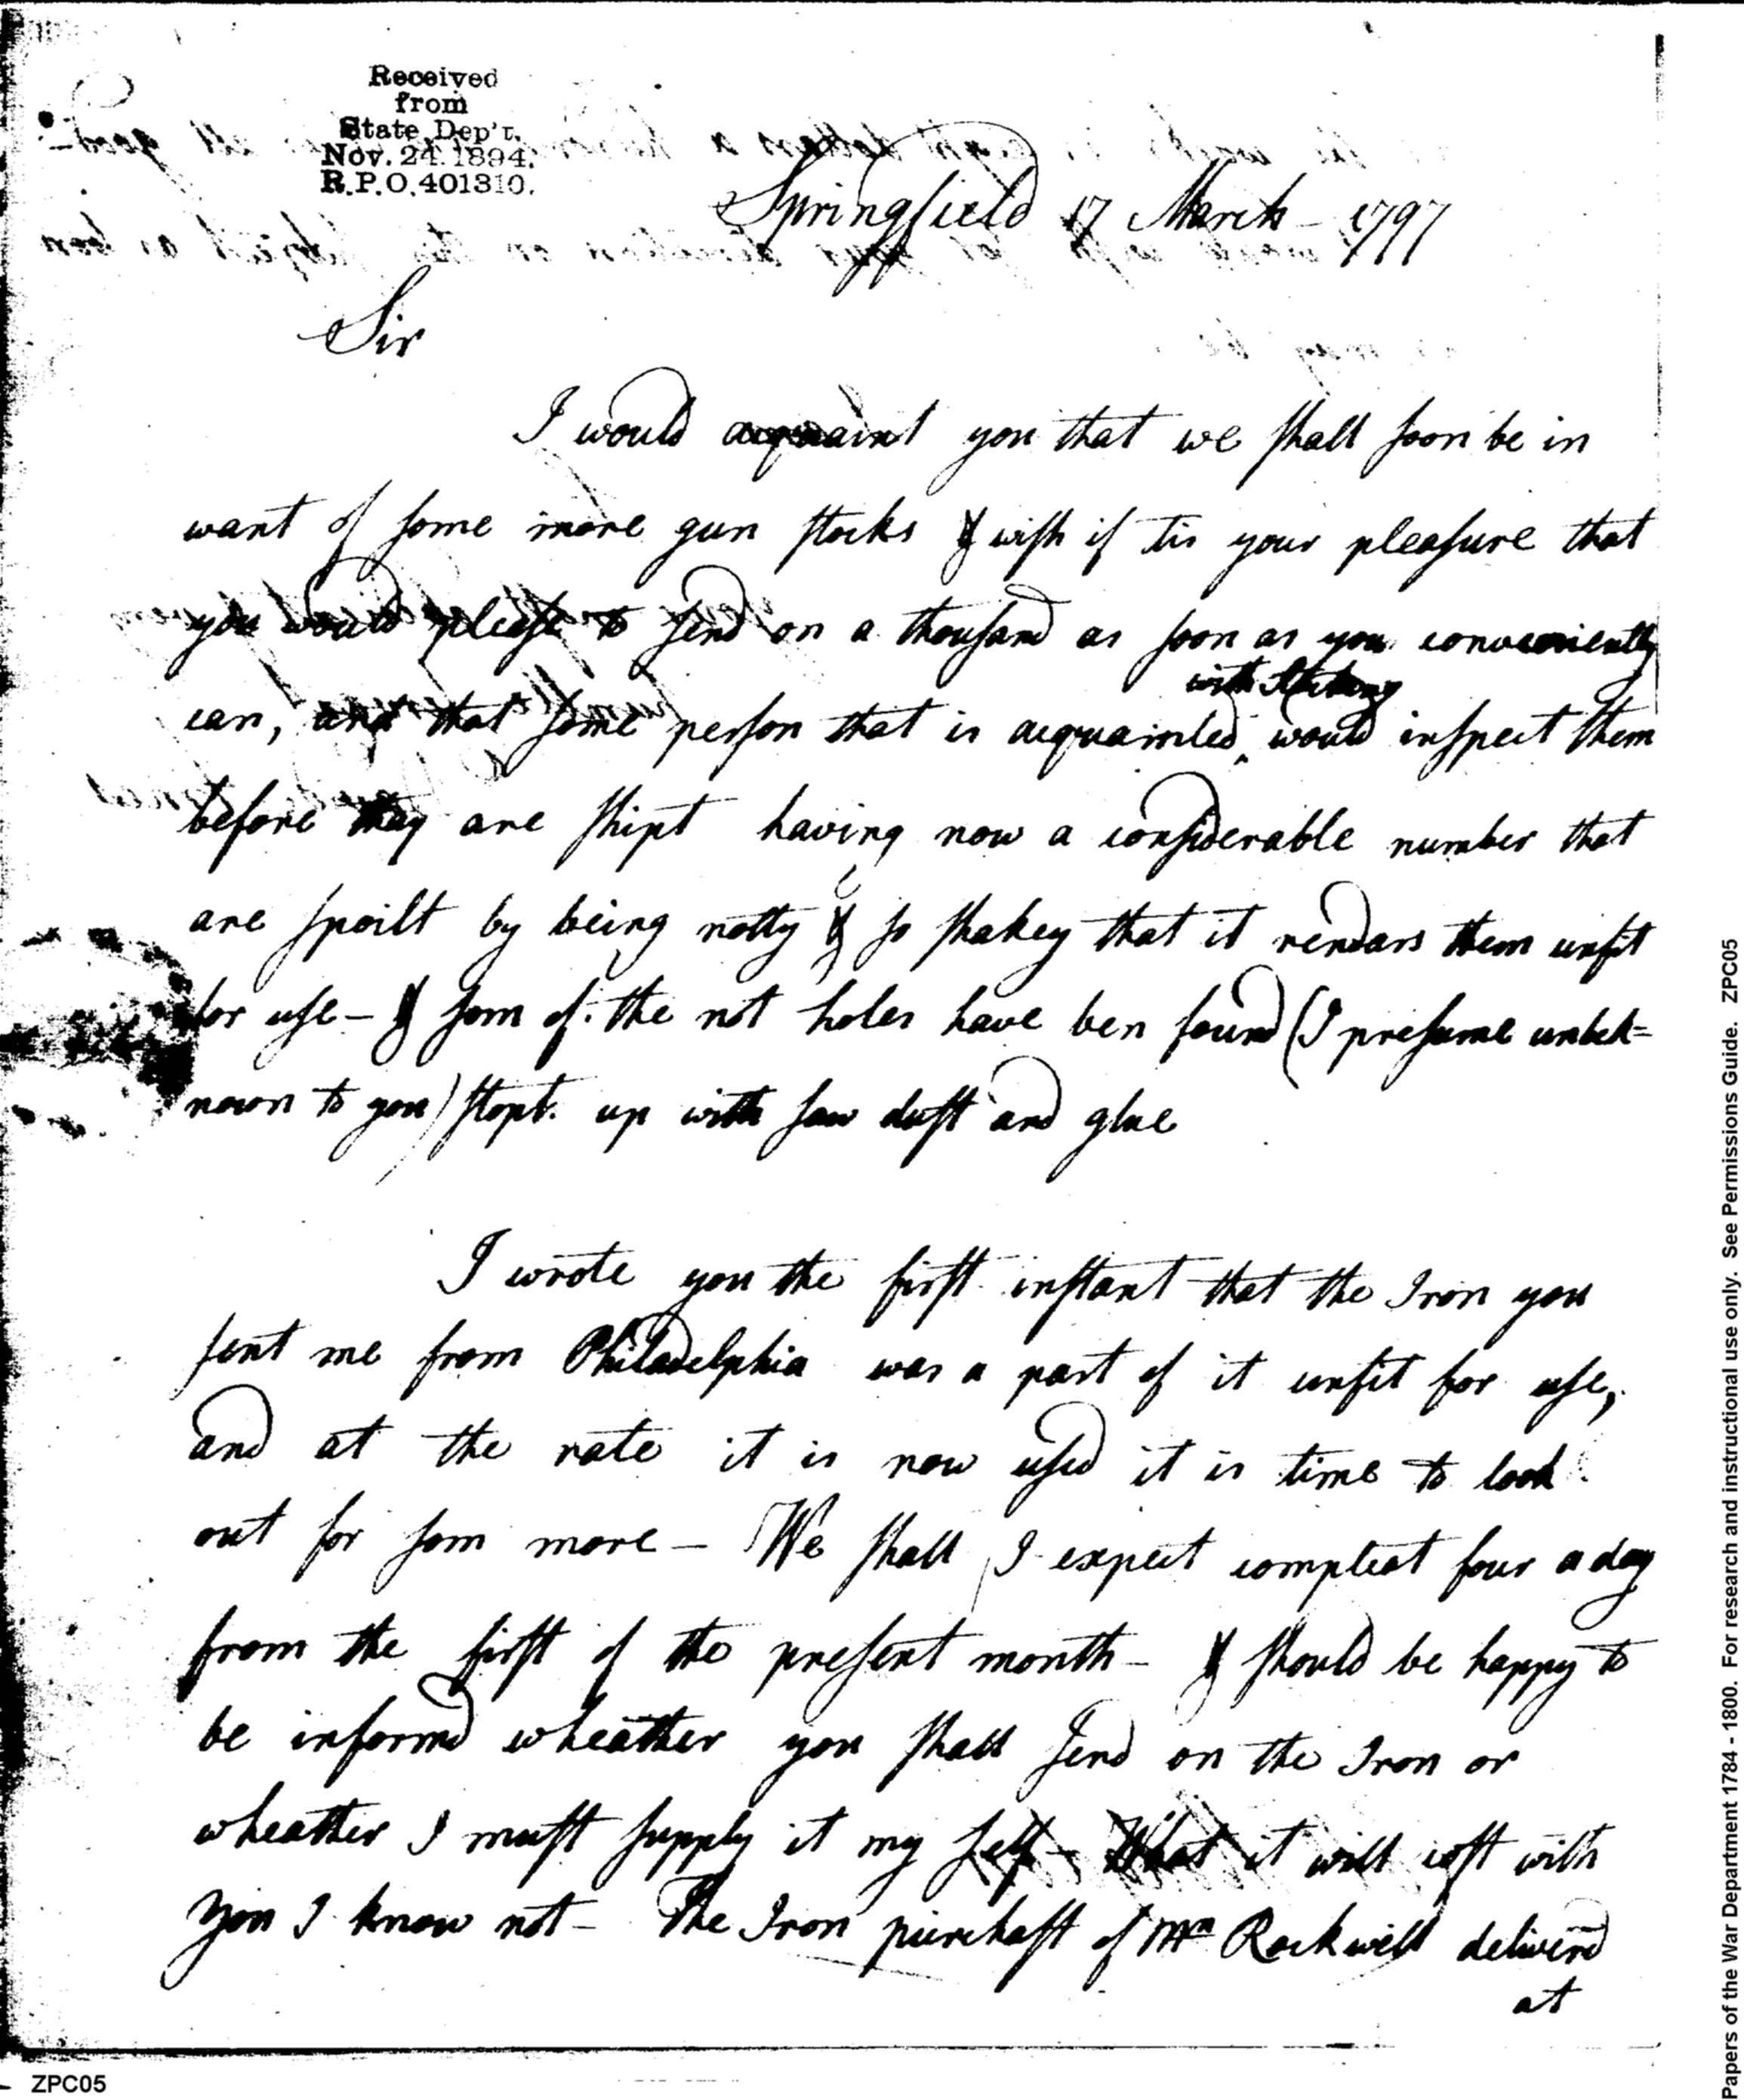 Received
from
State Dep't.
Nov. 24. 1894.
R.P.O. 401310.
Springfield 17 March - 1797
Sir
I would acquaint you that we shall soon be in
want of some more gun stocks & wish if tis your pleasure that
you would please to send on a thousand as soon as you conveniently
with Stocking
can, and that some person that is acquainted ‸ would inspect them
before they are shipt having now a considerable number that
are spoilt by being notty & so shakey that it rendars them unfit
for use - & som of the not holes have ben found (I presume unbek=
nown to you) stopt. up with saw dust and glue
I wrote you the first instant that the Iron you
sent me from Philadelphia was a part of it unfit for use,
and at the rate it is now used it is time to look
out for som more - We shall I expect compleat four a day
from the first of the present month - & should be happy to
be informd wheather you shall send on the Iron or
wheather I must supply it my self - What it will cost with
you I know not - The Iron purchast of Mr Rockwell deliverd
at
ZPC05
Papers of the War Department 1784 - 1800. For research and instructional use only. See Permissions Guide. ZPC05